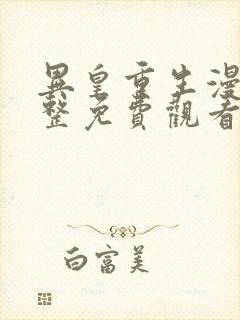 異皇重生漫
整免費觀看
白富美